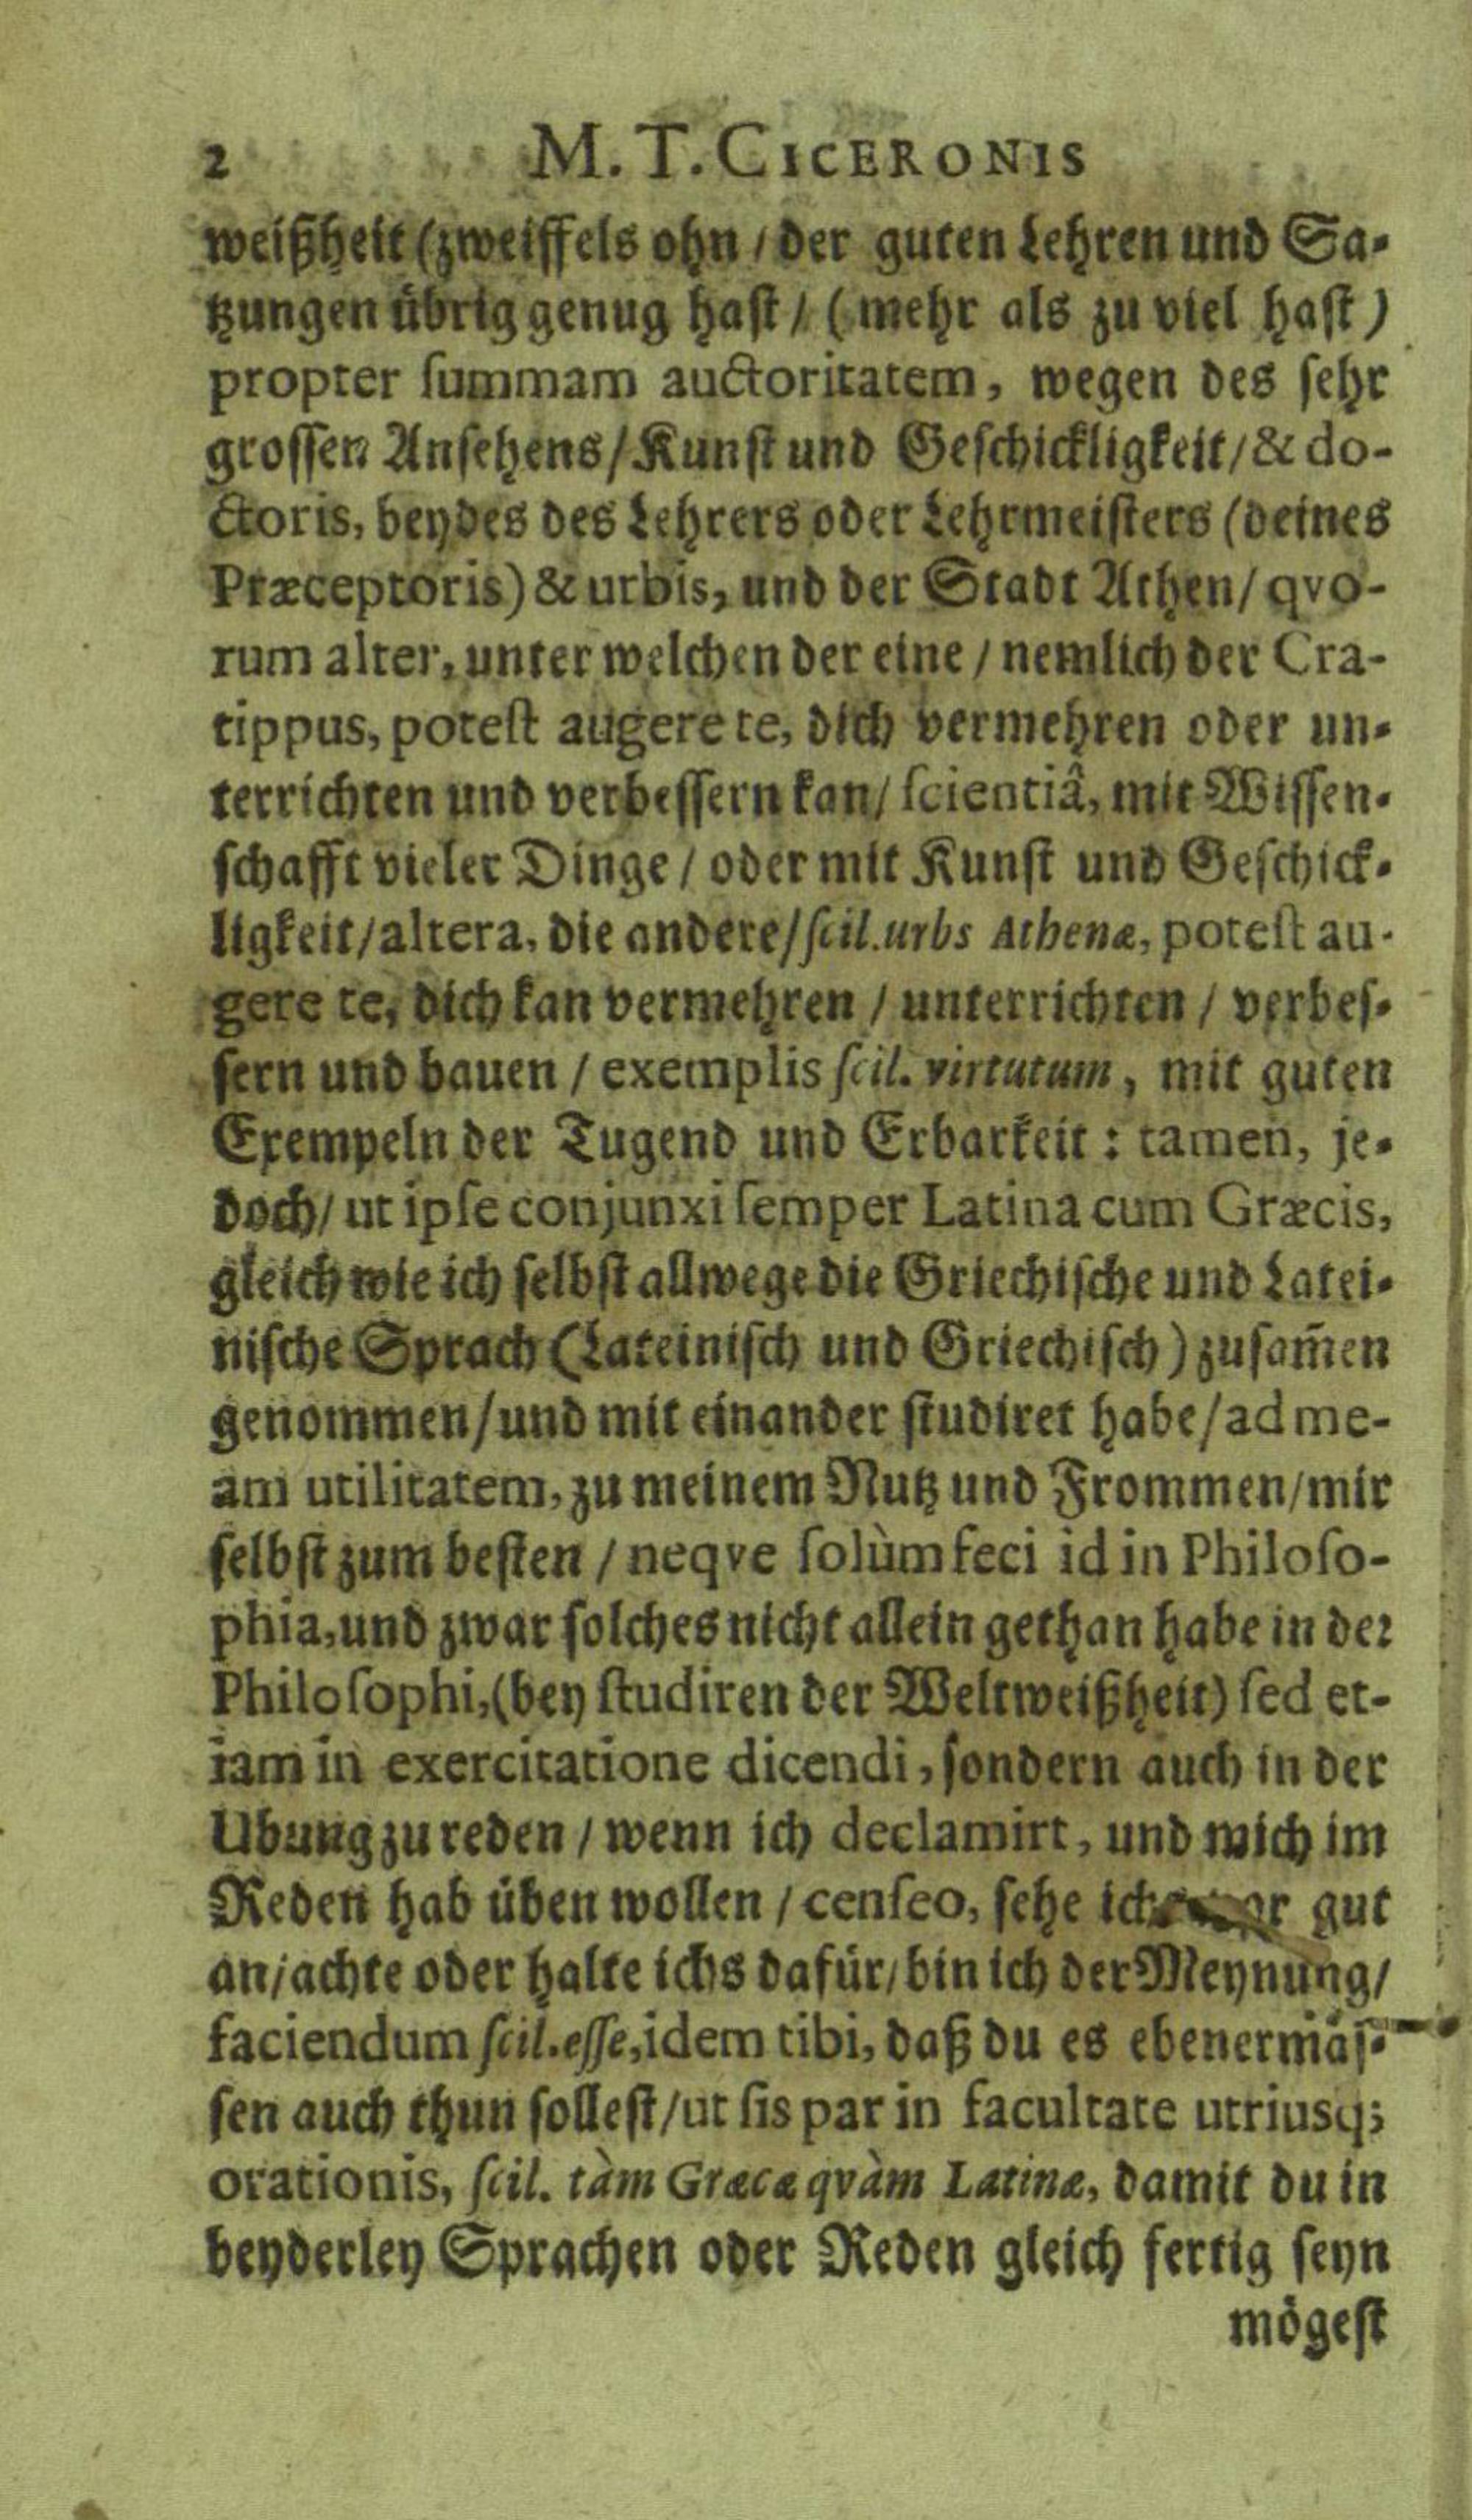 2 M. T. CICERONIS
weißheit (zweiffels ohn / der guten Lehren und Sa-
tzungen übrig genug hast / (mehr als zu viel hast)
propter ſummam auctoritatem, wegen des ſehr
groſſen Anſehens / Kunſt und Geſchickligkeit / & do-
ctoris, beydes des Lehrers oder Lehrmeiſters (deines
Præceptoris) & urbis, und der Stadt Athen / qvo-
rum alter, unter welchen der eine / nemlich der Cra-
tippus, poteſt augere te, dich vermehren oder un-
terrichten und verbeſſern kan / ſcientiâ, mit Wiſſen-
ſchafft vieler Dinge / oder mit Kunſt und Geſchick-
ligkeit / altera, die andere / ſcil. urbs Athenæ, poteſt au-
gere te, dich kan vermehren / unterrichten / verbeſ-
ſern und bauen / exemplis ſcil. virtutum, mit guten
Exempeln der Tugend und Erbarkeit : tamen, je-
doch / ut ipſe conjunxi ſemper Latina cum Græcis,
gleich wie ich ſelbſt allwege die Griechiſche und Latei-
niſche Sprach (Lateiniſch und Griechiſch) zuſam̃en
genommen / und mit einander ſtudiret habe / ad me-
am utilitatem, zu meinem Nutz und Frommen / mir
ſelbſt zum beſten / neqve ſolùm feci id in Philoſo-
phia, und zwar ſolches nicht allein gethan habe in der
Philoſophi, (bey ſtudiren der Weltweißheit) ſed et-
iam in exercitatione dicendi, ſondern auch in der
Ubung zu reden / wenn ich declamirt, und mich im
Reden hab üben wollen / cenſeo, ſehe ich gut
an / achte oder halte ichs dafür / bin ich der Meynung /
faciendum ſcil. eſſe, idem tibi, daß du es ebenermäſ-
ſen auch thun ſolleſt / ut ſis par in facultate utriusq;
orationis, ſcil. tàm Græcæ qvàm Latinæ, damit du in
beyderley Sprachen oder Reden gleich fertig ſeyn
mögeſt